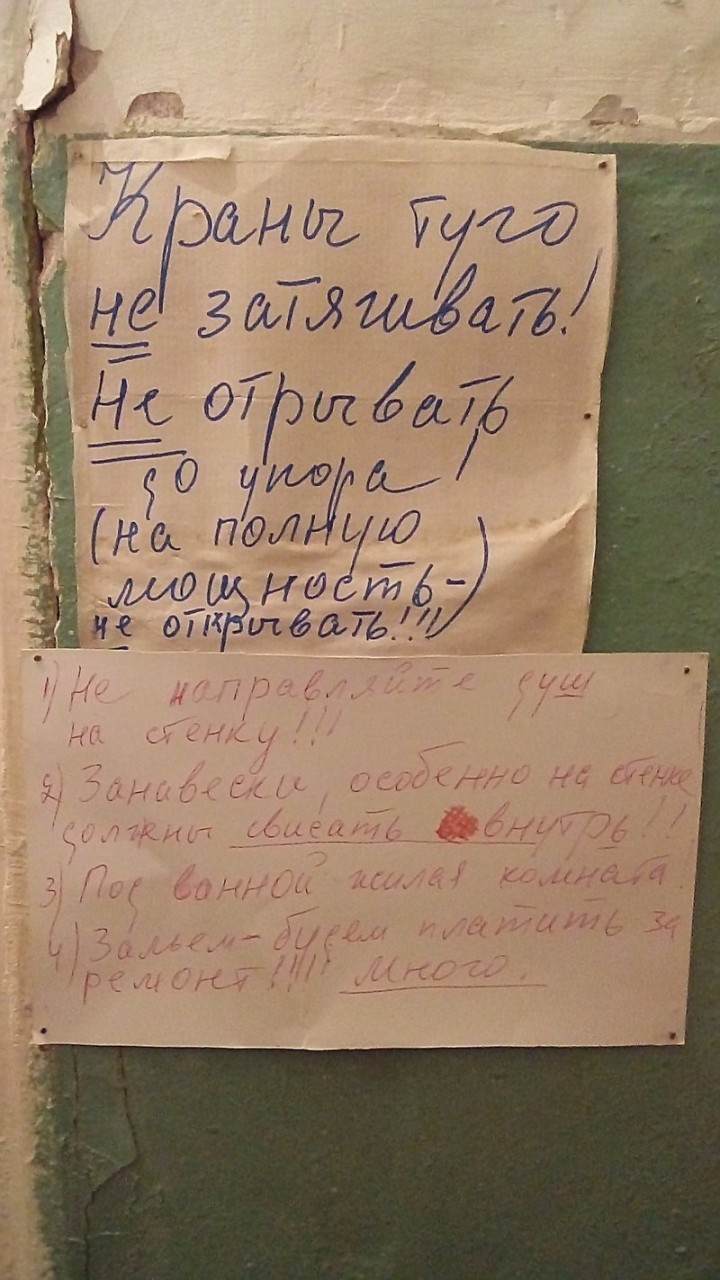 Краны туго
не затягивать!
Не отрывать
до упора!
(на полную
мощность-)
не открывать!!!!
1) Не направляйте душ
на стенку!!!
2) Занавески, особенно на стенке
должны свисать внутрь!!
3) Под ванной жилая комната!
4) Зальем - будем платить за
ремонт!!!!! Много.